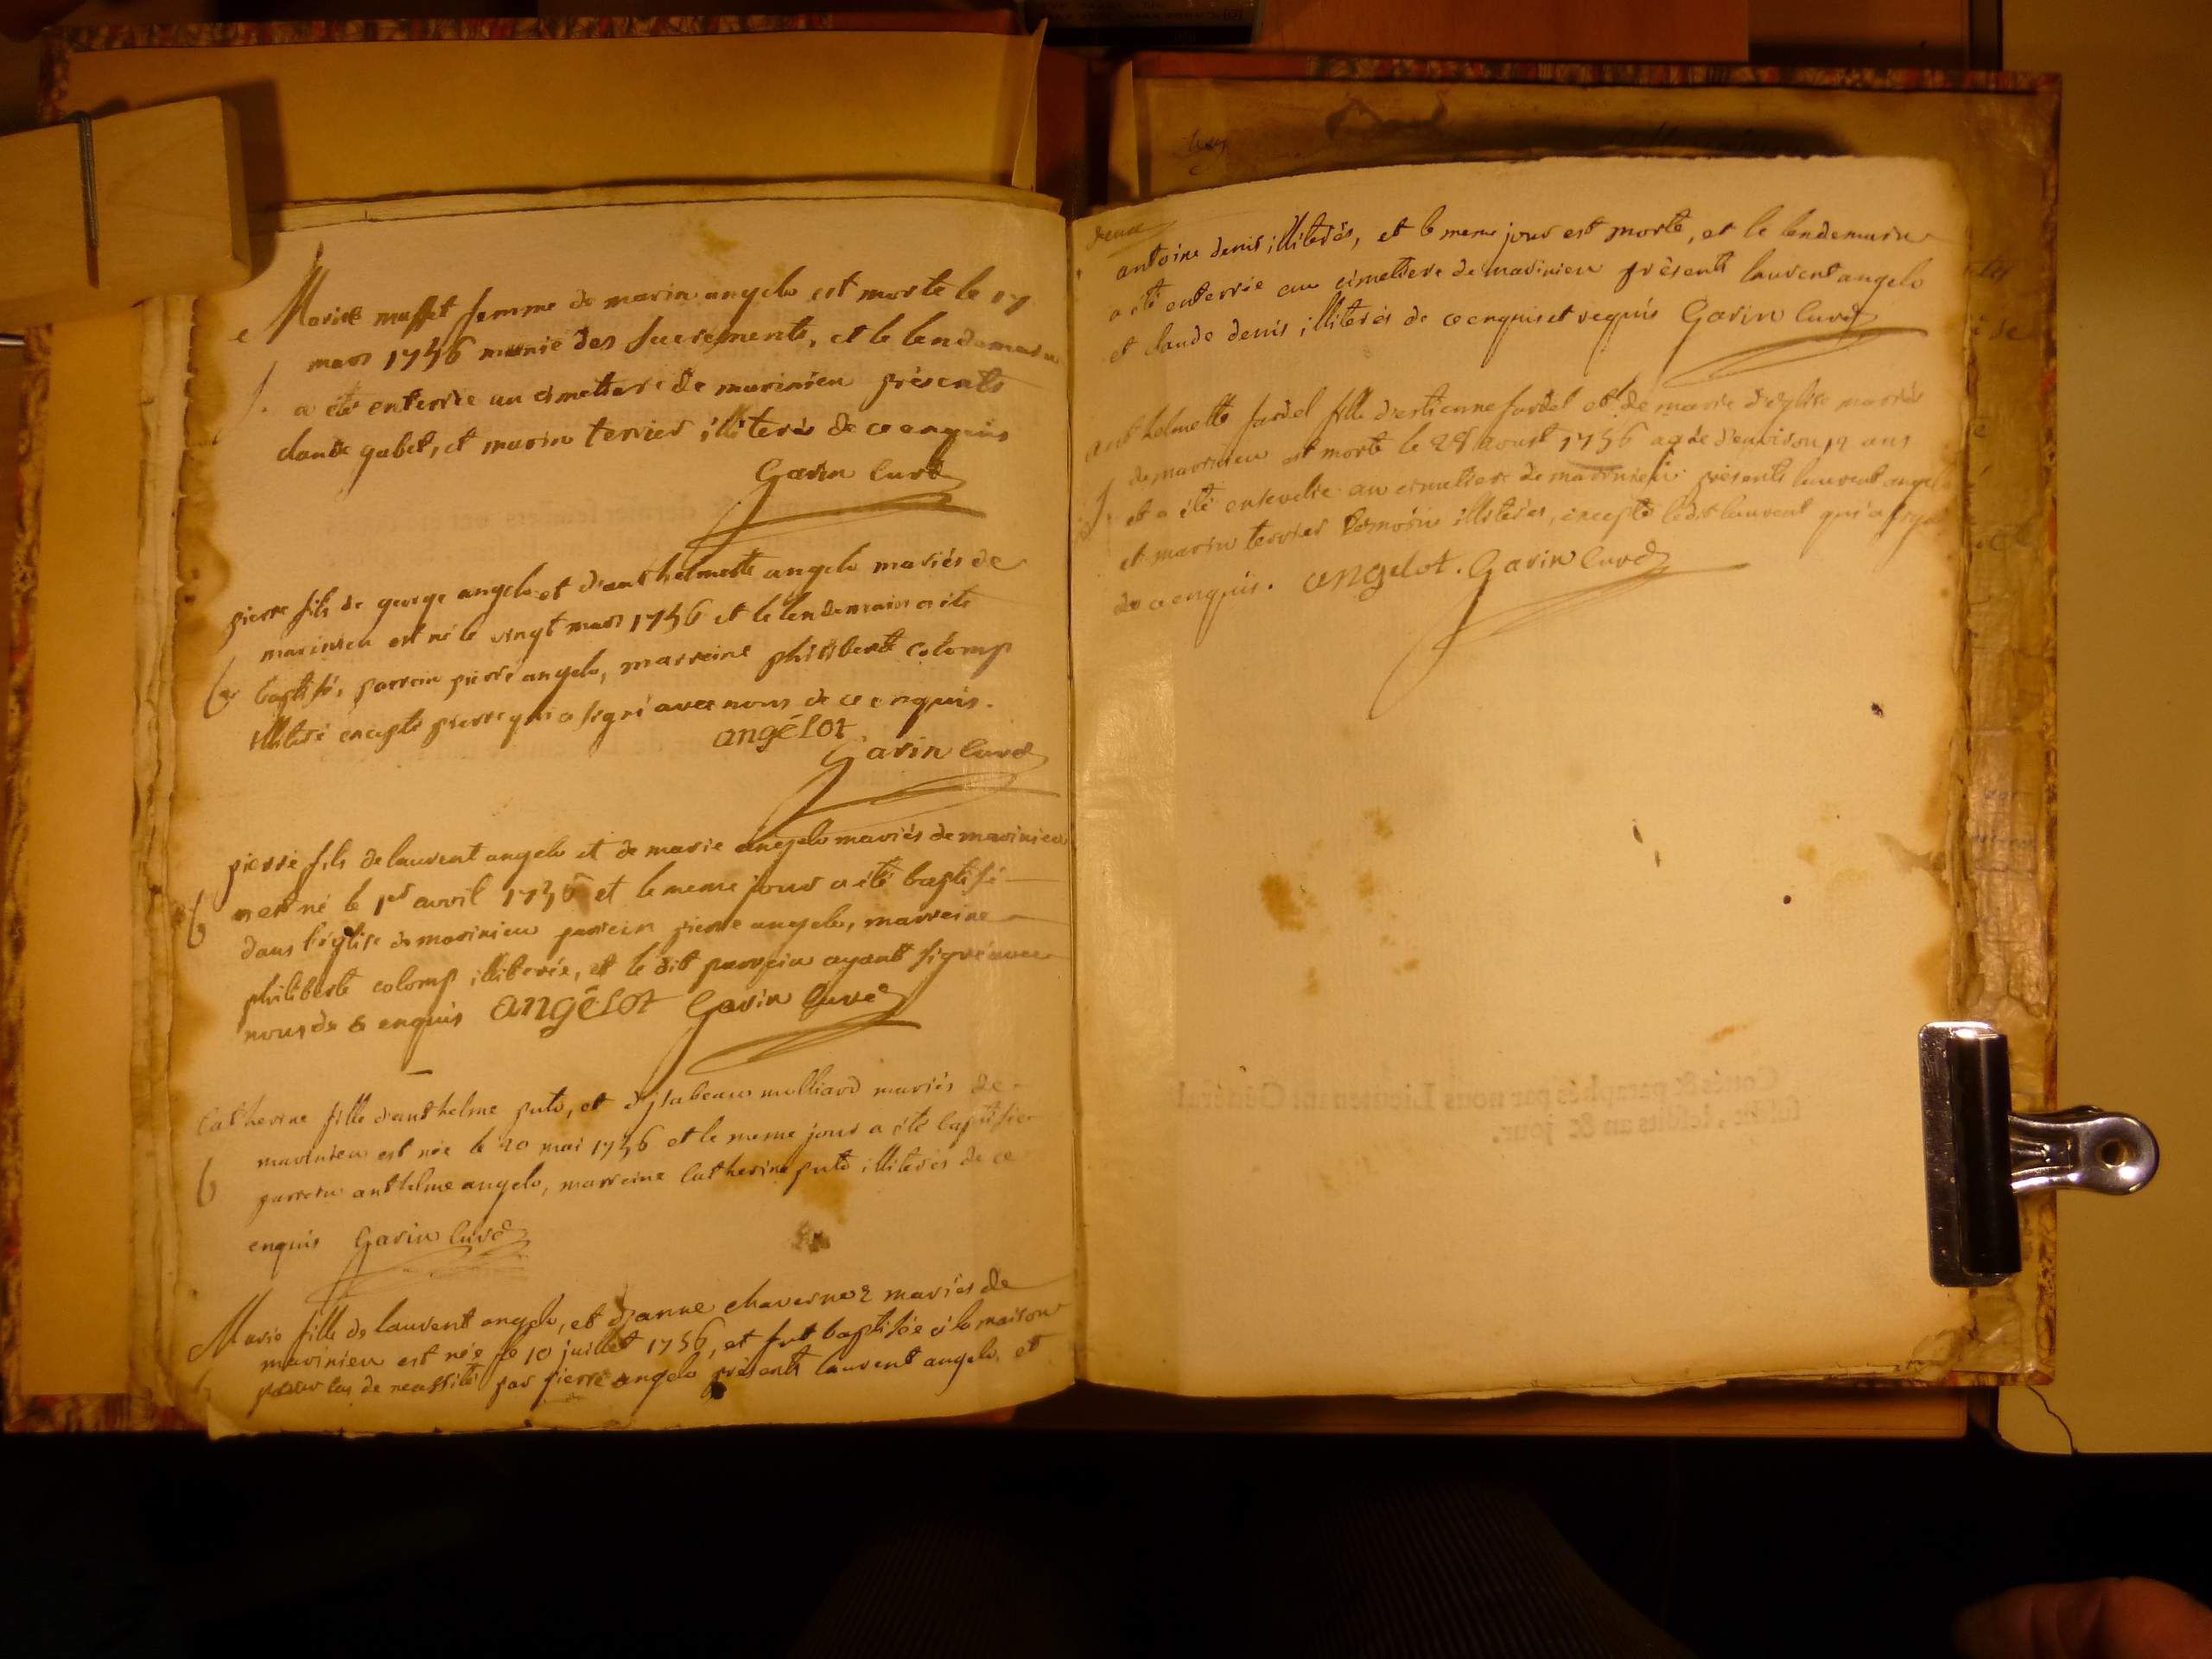 Marie maffet femme de marin angelo est morte le 17
mars 1756 munie des sacrements, et le lendemain
a été enterrée au cimetiere de marinieu présents
claude gabet, et marin terrier illiterés de ce enquis
Garin Curé
pierre fils de george angelo et d'anthelmette angelo mariés de
marinieu est né le vingt mars 1756 et le lendemain a été
b baptisé, parrein pierre angelo, marreine philiberte colomp
illiteré excepté pierre qui a signé avec nous de ce enquis.
angélot
Garin Curé
pierre fils de laurent angelo et de marie angelo mariés de marinieu
b est né le 1er avril 1756 et le meme jour a été baptisé
dans l'église de marinieu parrein pierre angelo, marreine
philiberte colomp illiterée, et le dit parrein ayant signé avec
nous de ce enquis angélot Garin Curé
Catherine fille d'anthelme puto, et d'ysabeau milliard mariés de
marinieu est née le 20 mai 1756 et le meme jour a été baptisée
b parrein anthelme angelo, marreine Catherine puto illiterés de ce
enquis Garin Curé
Marie fille de laurent angelo, et d'janne chavernoz mariés de
marinieu est née le 10 juillet 1756, et fut baptisée à la maison
pour cas de necessité par pierre angelo présents laurent angelo, et
antoine denis illiterés, et le meme jour est morte, et le lendemain
a été enterrée au cimetiere de marinieu présents laurent angelo
et claude denis illiterés de ce enquis et requis Garin Curé
anthelmette fardel fille d'estienne fardel et de marie d'eglise mariés
de marinieu est morte le 28 aoust 1756 agée d'environ 12 ans
et a été ensevelie au cimetiere de marinieu présents laurent angelo
et marin terrier témoins illiterés, excepté ledit laurent qui a signé
de ce enquis. angelot. Garin Curé
Cottés & paraphés par nous Lieutenant Général
susdit, lesdits an & jour.